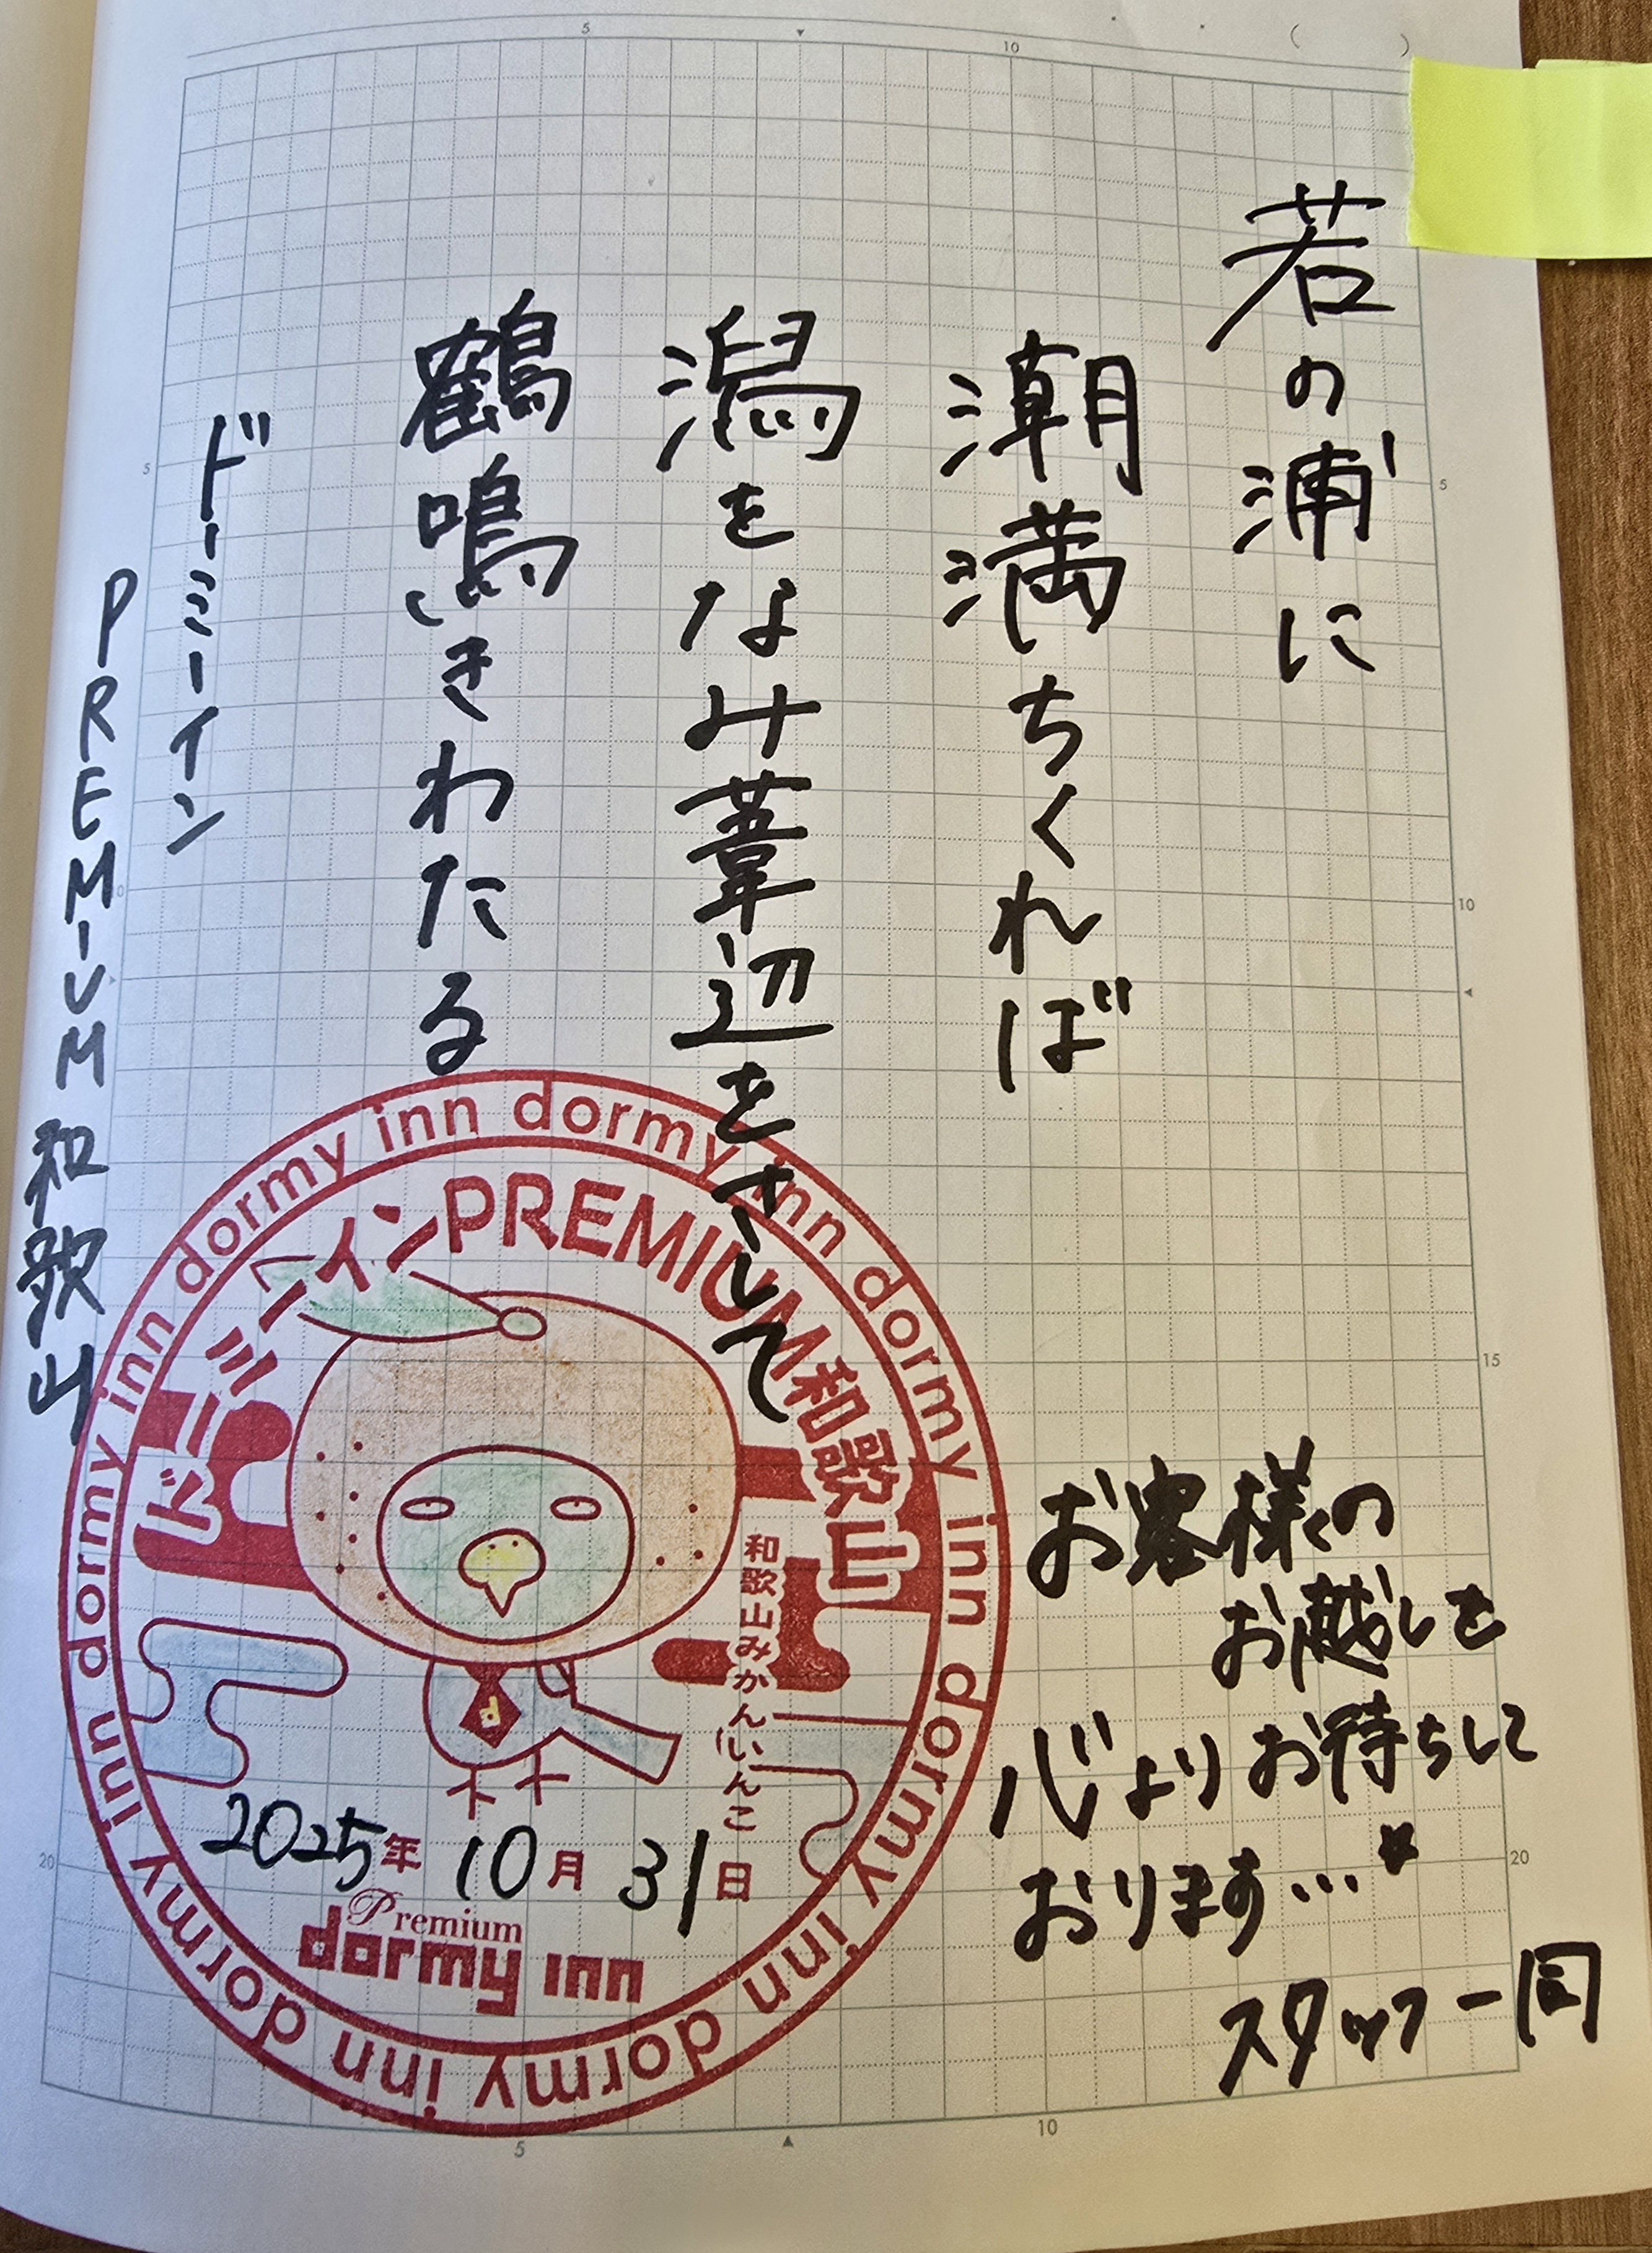 若の浦に
潮満ちくれば
潟をなみ葦辺をさして
鶴鳴きわたる
ドーミーイン
PREMIUM和歌山
dormy inn dormy inn dormy inn dormy inn dormy inn dormy inn dormy inn dormy inn dormy inn
ドーミーインPREMIUM和歌山
和歌山みかんいんこ
d
2025年 10月 31日
Premium
dormy inn
お客様の
お越しを
心よりお待ちして
おります…★
スタッフ一同
( )
5
10
5
10
15
20
5
10
20
5
10